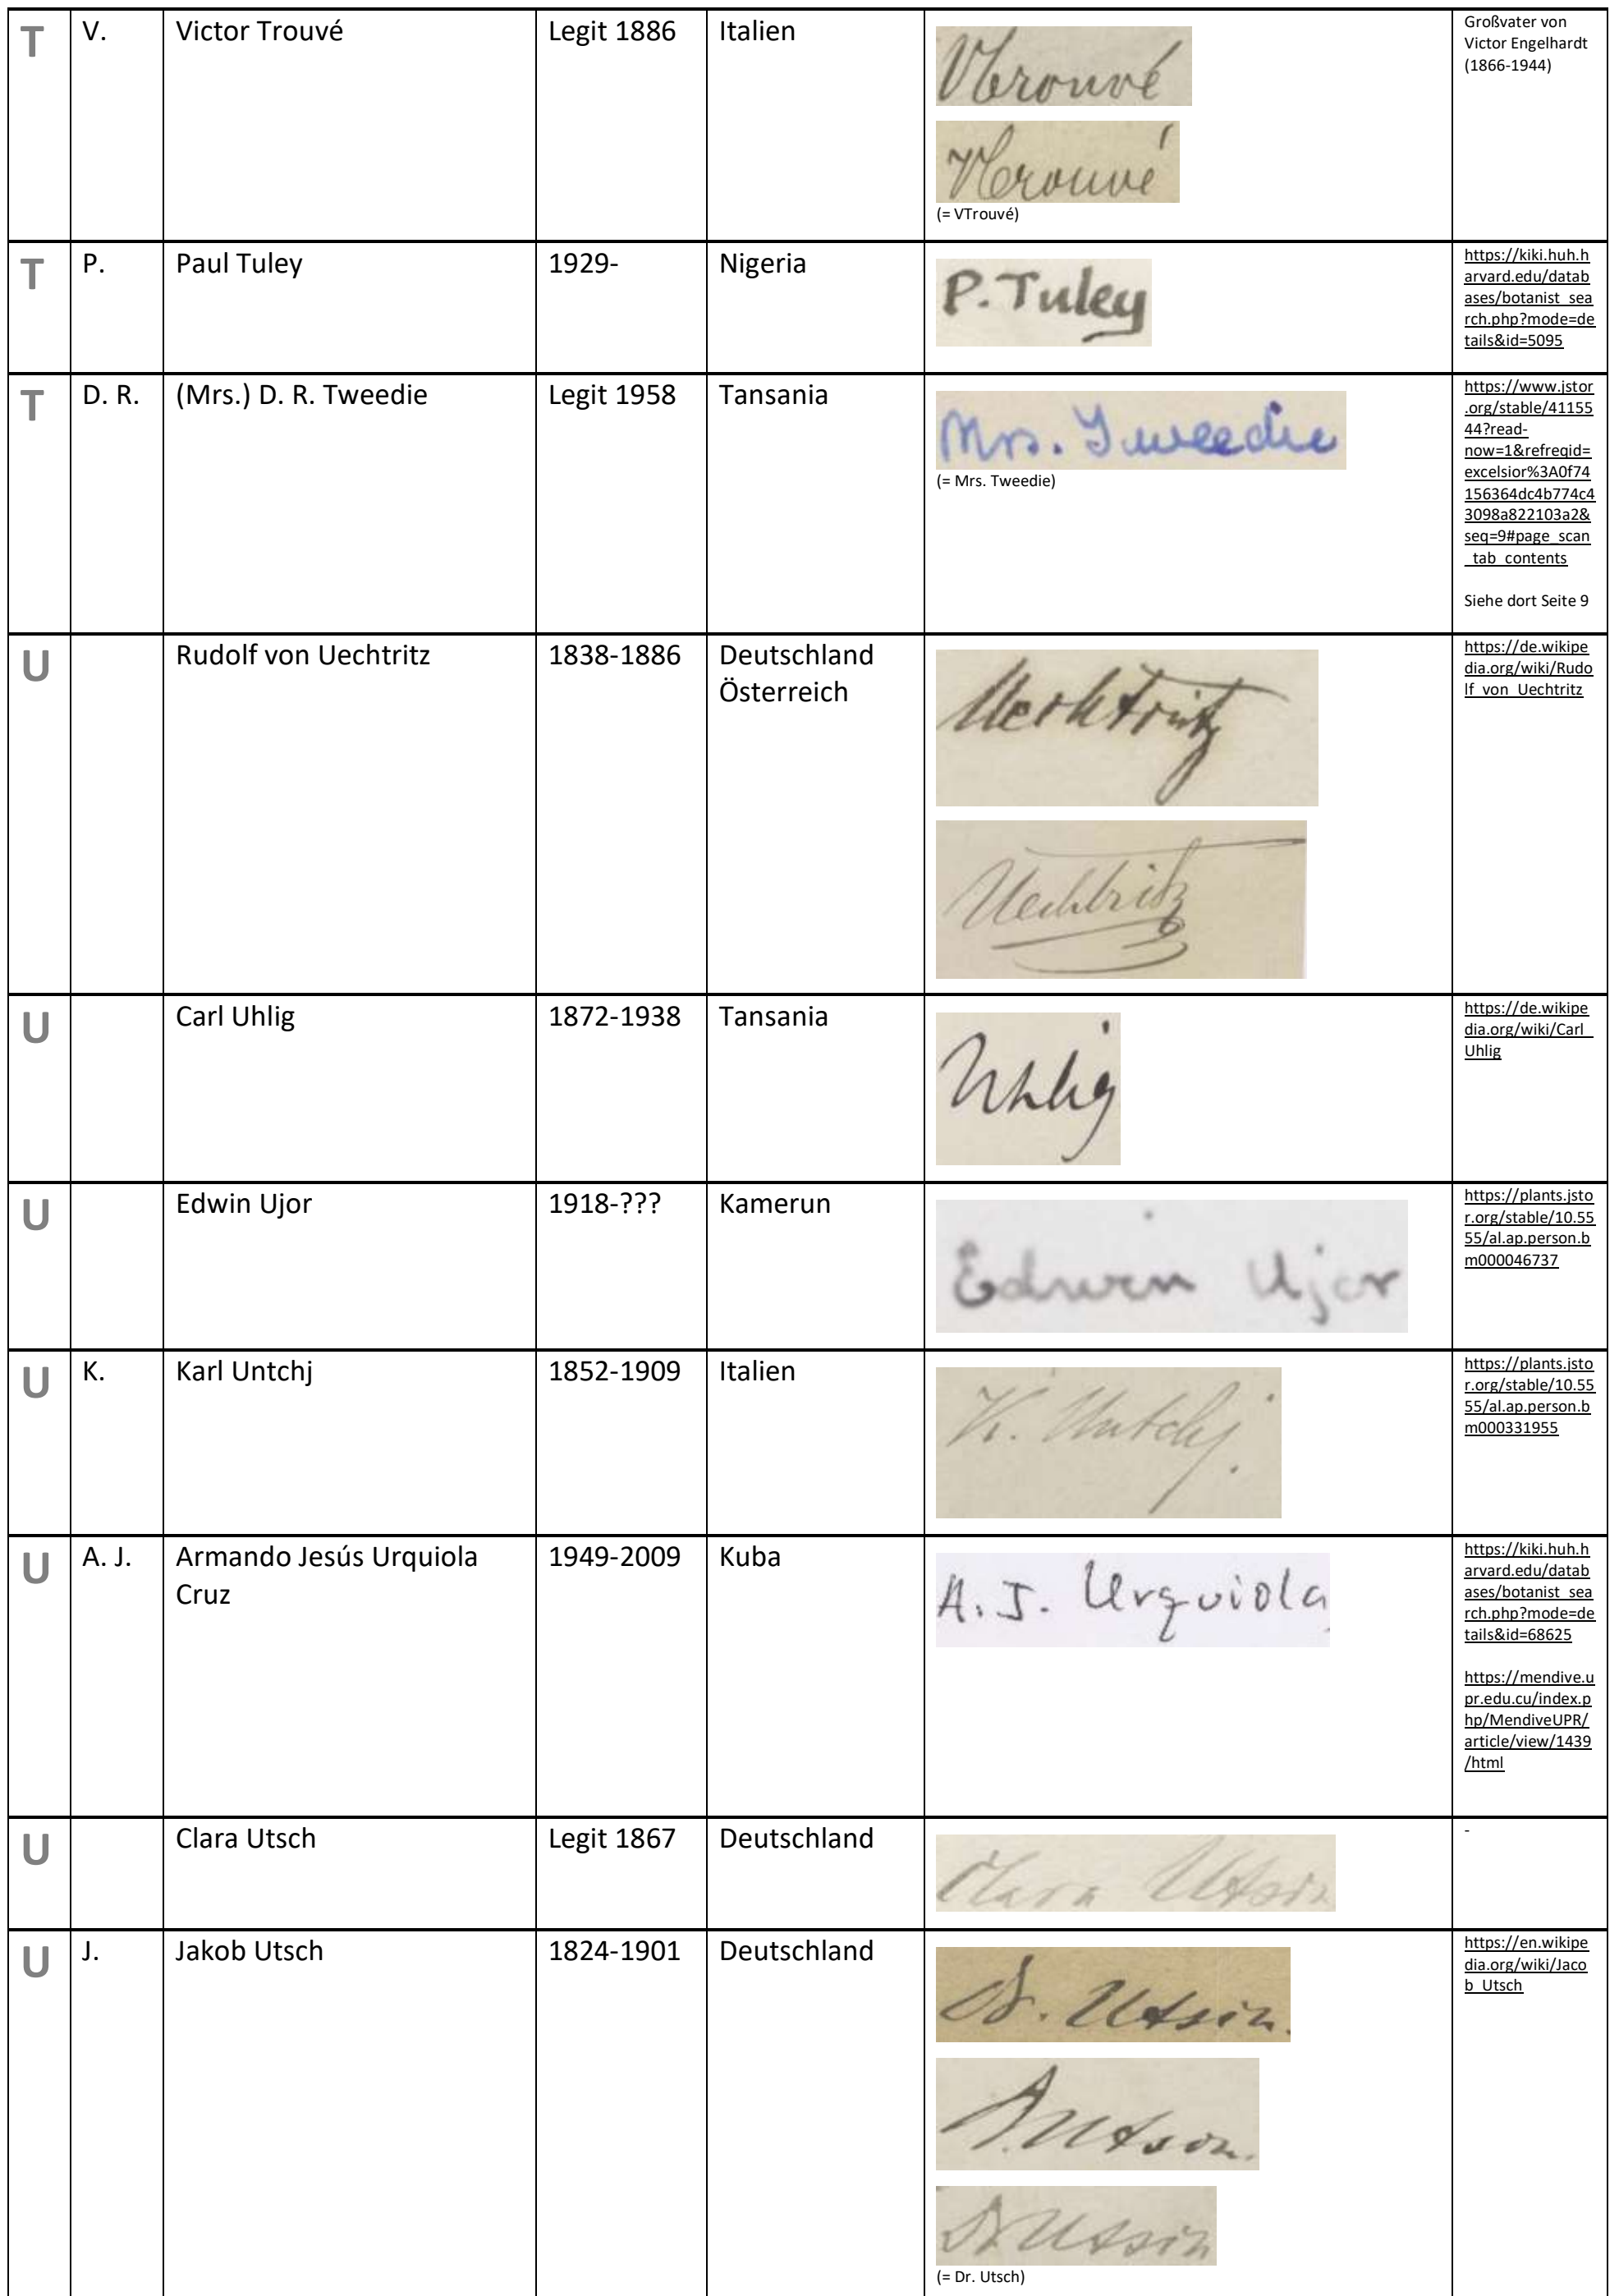 T V. Victor Trouvé Legit 1886 Italien VTrouvé Großvater von
Victor Engelhardt
(1866-1944)
VTrouvé
(= VTrouvé)
T P. Paul Tuley 1929- Nigeria P. Tuley https://kiki.huh.h
arvard.edu/datab
ases/botanist_sea
rch.php?mode=de
tails&id=5095
T D. R. (Mrs.) D. R. Tweedie Legit 1958 Tansania Mrs. Tweedie https://www.jstor
.org/stable/41155
44?read-
now=1&refreqid=
excelsior%3A0f74
156364dc4b774c4
3098a822103a2&
seq=9#page_scan
_tab_contents
(= Mrs. Tweedie)
Siehe dort Seite 9
U Rudolf von Uechtritz 1838-1886 Deutschland
Österreich
Uechtritz
Uechtritz
https://de.wikipe
dia.org/wiki/Rudo
lf_von_Uechtritz
U Carl Uhlig 1872-1938 Tansania Uhlig https://de.wikipe
dia.org/wiki/Carl_
Uhlig
U Edwin Ujor 1918-??? Kamerun Edwin Ujor https://plants.jsto
r.org/stable/10.55
55/al.ap.person.b
m000046737
U K. Karl Untchj 1852-1909 Italien K. Untchj. https://plants.jsto
r.org/stable/10.55
55/al.ap.person.b
m000331955
U A. J. Armando Jesús Urquiola
Cruz
1949-2009 Kuba A. J. Urquiola https://kiki.huh.h
arvard.edu/datab
ases/botanist_sea
rch.php?mode=de
tails&id=68625
https://mendive.u
pr.edu.cu/index.p
hp/MendiveUPR/
article/view/1439
/html
U Clara Utsch Legit 1867 Deutschland Clara Utsch -
U J. Jakob Utsch 1824-1901 Deutschland Dr. Utsch. https://en.wikipe
dia.org/wiki/Jaco
b_Utsch
Dr Utsch.
Dr Utsch
(= Dr. Utsch)